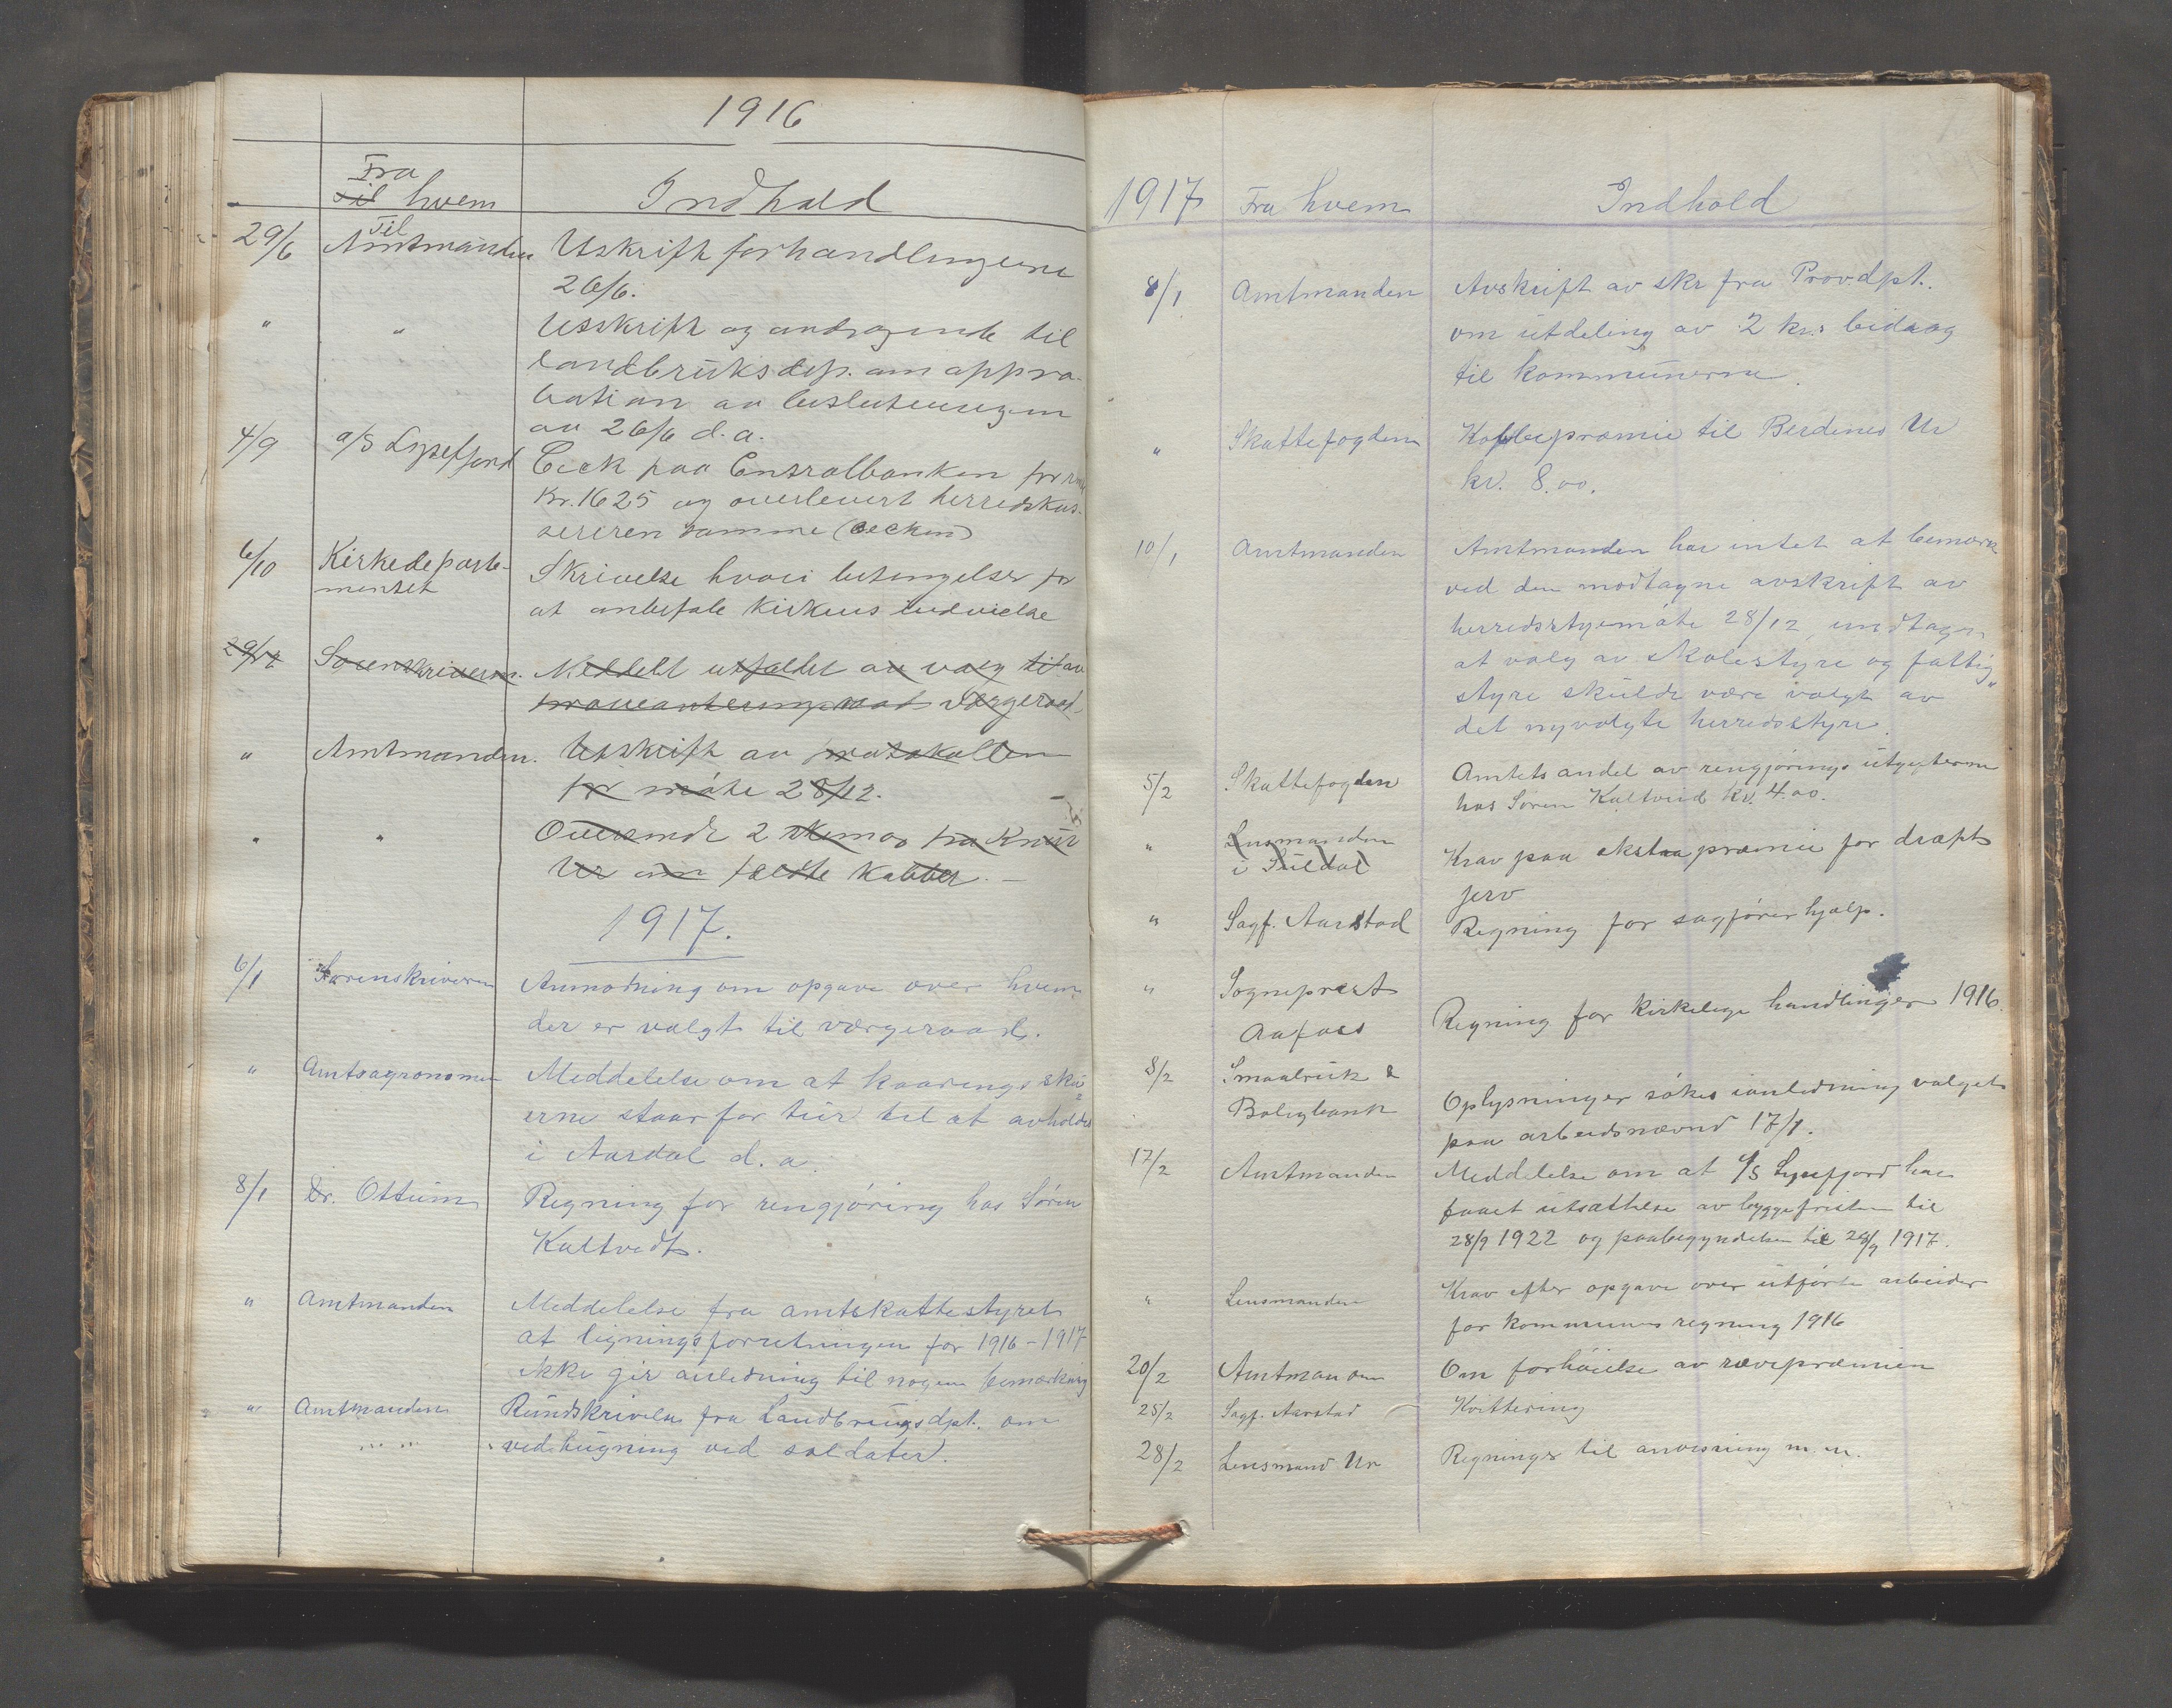 1916
Fra
Til hvem Indhold
Til
29/6 Amtmanden Utskrift forhandlingerne
26/6.
" " Utskrift og andragende til
landbruksdep. om appro-
bation av beslutningen
av 26/6 d.a.
4/9 a/s Lysefjord Ceck paa Centralbanken for
Kr. 1625 og overlevert herredskas-
sereren samme (cecken)
6/10 Kirkedeparte- Skrivelse hvori betingelser for
mentet at anbefale kirkens indvielse
29/12 Sorenskriveren. Meddelt utfaldet av valg til av
provianteringsraad vergeraad.
" Amtmanden. Utskrift av protokollen
for møte 28/12.
" " Oversendt 2 skemaer fra Knut
Ur om fældte kobber. —
1917.
6/1 Sorenskriveren Anmodning om opgave over hvem
der er valgt til værgeraad.
" Amtsagronomen Meddelelse om at kaaringsskú
erne staar for túr til at avholdes
i Aardal d.a.
8/1 Dr. Ottúm Regning for rengjøring hos Søren
Kaltvedt.
" Amtmanden Meddelelse fra amtskattestyret
at ligningsforretningen for 1916-1917
ikke gir anledning til nogen bemærkning
" Amtmanden Rúndskrivelse fra Landbruksdpt. om
" " vedhúgning ved soldater.
1917 Fra hvem Indhold
8/1 Amtmanden Avskrift av skr fra Prov.dpt.
om útdeling av 2 kr.s bidrag
til kommúnerne.
" Skattefogden Kobbepræmie til Berdines Ur
kr. 8.00.
10/1 Amtmanden Amtmanden har intet at bemærke
ved den modtagne avskrift av
herredsstyremøte 28/12, undtagen
at valg av skolestyre og fattig"
styre skúlde være valgt av
det nyvalgte herredsstyre.
5/2 Skattefogden Amtets andel av rengjørings útgifterne
hos Søren Kaltveid kr. 4.00.
" Lensmanden
i Súldal Krav paa ekstrapræmie for dræpt
jerv
" Sagf. Aarstad Regning for sagførerhjælp.
" Sogneprest
Aafoss Regning for kirkelige handlinger 1916
8/2 Smaabrúk &
Boligbank Oplysninger søkes ianledning valget
paa arbeidsnævnd 17/1.
17/2 Amtmanden Meddelelse om at a/s Lysefjord har
faaet útsættelse av byggefristen til
28/9 1922 og paabegyndelsen til 28/9 1917.
" Lensmanden Krav efter opgave over útførte arbeider
for kommunens regning 1916
20/2 Amtmanden Om forhøielse av rævepræmien
25/2 Sagf. Aarstad Kvittering
28/2 Lensmand Ur Regninger til anvisning m.m.